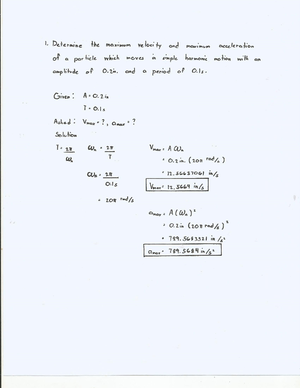 1. Determine the maximum velocity and maximum acceleration
of a particle which moves in simple harmonic motion with an
amplitude of 0.2in. and a period of 0.1s.
Given: A = 0.2in
T = 0.1s
Asked: Vmax = ?, amax = ?
Solution
T = 2π / ωn
ωn = 2π / T
ωn = 2π / 0.1s
= 20π rad/s
Vmax = A ωn
= 0.2in (20π rad/s)
= 12.56637061 in/s
Vmax = 12.5664 in/s
amax = A(ωn)²
= 0.2in (20π rad/s)²
= 789.5683521 in/s²
amax = 789.5684 in/s²